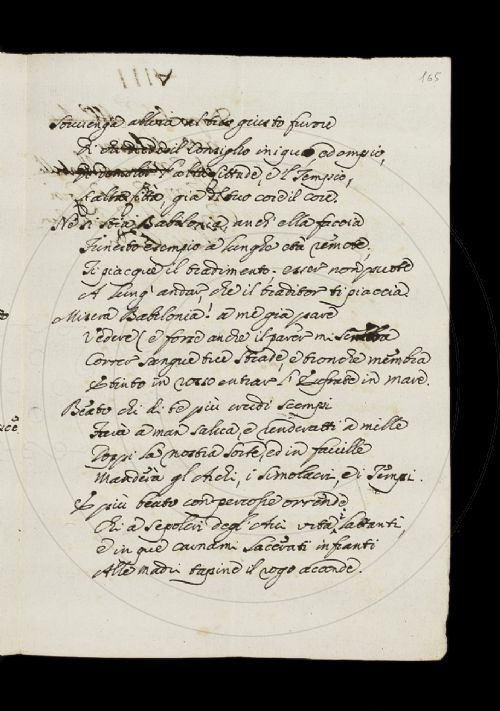 165
Souvenga allora al tuo giusto furore
Di chi diede il Consiglio iniquo, ed empio,
Di demolir l'alta Cittade, e 'l Tempio,
L'alta Città, già del tuo cor il core.
Ne si stia Babilonia, anch'ella faccia
Funesto esempio a lunghe età remote,
Ti piacque il tradimento: esser non puote
A lung' andar, che il traditor ti piaccia.
Misera Babilonia! a me già pare
Vedere (e forse anche il parer mi sembra
Correr sangue tue strade, e tronche membra
E tinto in rosso entrar l'Eufrate in mare.
Beato chi di te più crudi scempi
Farà a man salva, e renderatti a mille
Doppi la nostra sorte, ed in faville
Manderà gl'Archi, i simolacri, e i Tempi.
E più beato con percosse orrende
Chi a sepolcri degl'Avi urta i lattanti,
e in que' carnami lacerati infanti
Alle madri tapine il rogo accende.